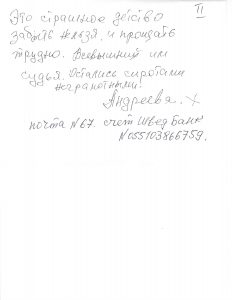 II
Это страшное действо
забыть нельзя, и прощать
трудно. Всевышний им
судья. Остались сиротами
неграмотными.
Андреева. X
почта N67. счет Швед Банк
N055103866759.